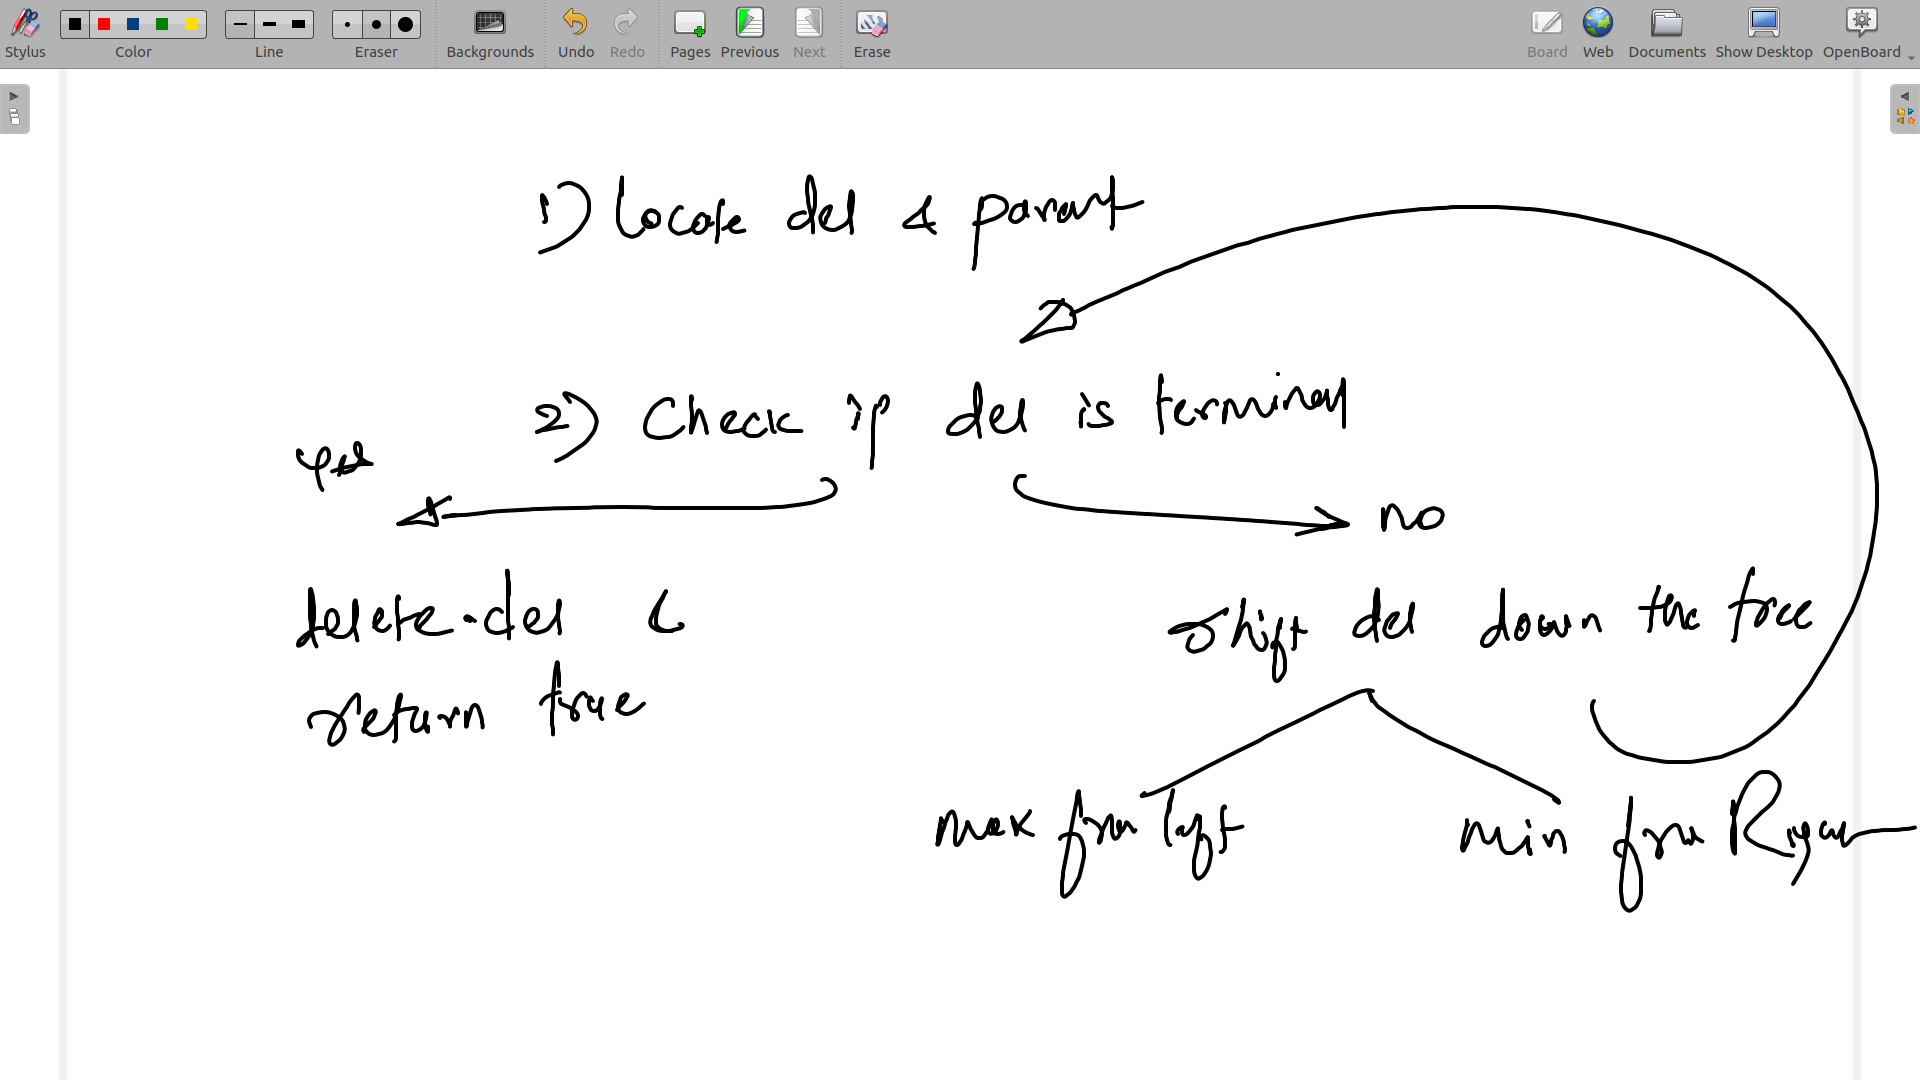 Stylus Color Line Eraser Backgrounds Undo Redo Pages Previous Next Erase Board Web Documents Show Desktop OpenBoard
1) Locate del & parent
2) Check if del is terminal
yes
no
delete del &
return true
shift del down the tree
max from left
min from Right